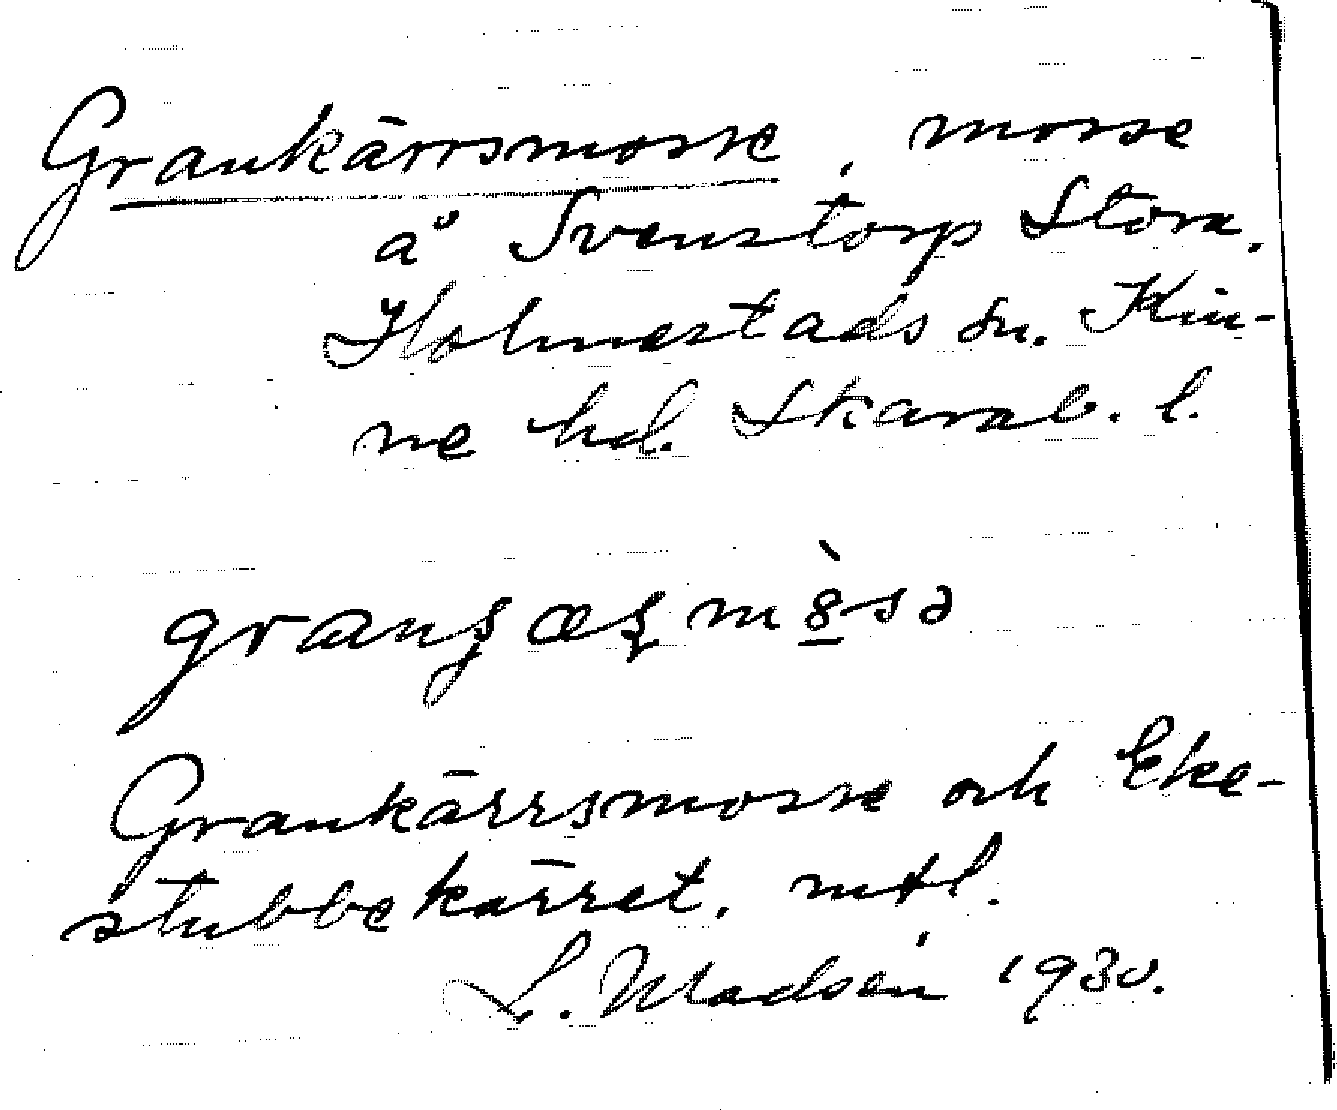 Grankärrsmosse, mosse
å Svenstorp Stora.
Holmestads sn. Kin-
ne hd. Skarab. l.
Grankärrsmosse och Eke-
stubbekärret. mtl.
L. Madsén 1930.